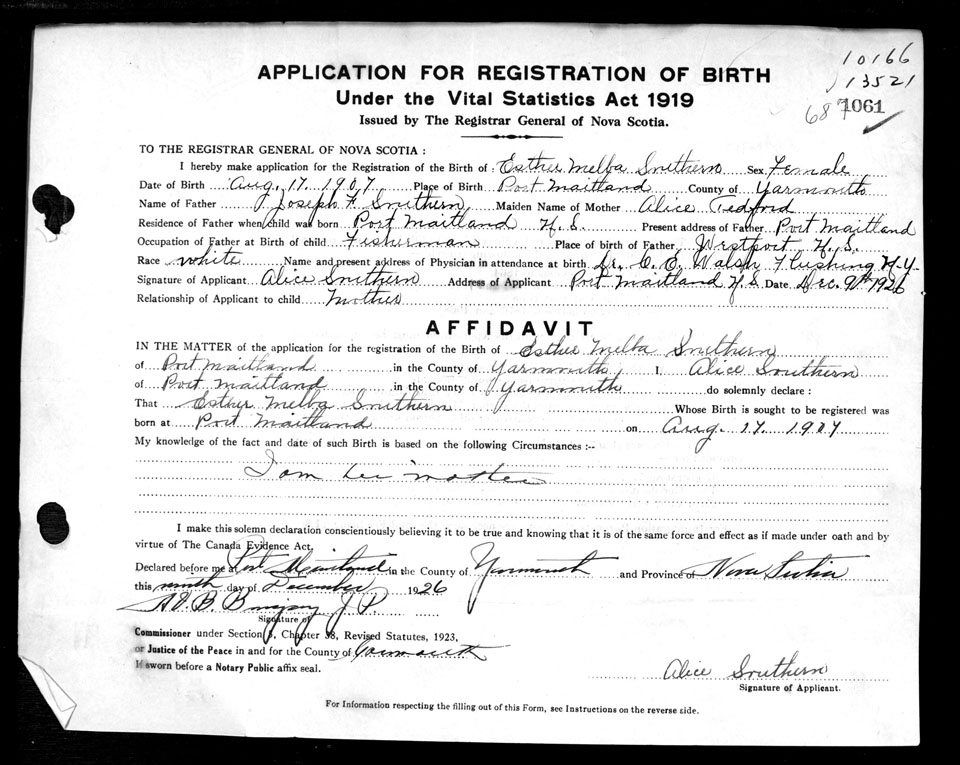 10166
13521
687
1061
APPLICATION FOR REGISTRATION OF BIRTH
Under the Vital Statistics Act 1919
Issued by The Registrar General of Nova Scotia.
TO THE REGISTRAR GENERAL OF NOVA SCOTIA :
I hereby make application for the Registration of the Birth of : Esther Melba Smithern Sex Female
Date of Birth Aug. 17 1907 Place of Birth Port Maitland County of Yarmouth
Name of Father J. Joseph F. Smithern Maiden Name of Mother Alice Tedford
Residence of Father when child was born Port Maitland N. S. Present address of Father Port Maitland
Occupation of Father at Birth of child Fisherman Place of birth of Father Westport N. S.
Race white Name and present address of Physician in attendance at birth Dr. C. C. Walsh Flushing N. Y.
Signature of Applicant Alice Smithern Address of Applicant Port Maitland N. S. Date Dec. 9th 1926
Relationship of Applicant to child Mother
AFFIDAVIT
IN THE MATTER of the application for the registration of the Birth of Esther Melba Smithern
of Port Maitland in the County of Yarmouth, I, Alice Southern
of Port Maitland in the County of Yarmouth do solemnly declare :
That Esther Melba Smithern Whose Birth is sought to be registered was
born at Port Maitland on Aug. 17. 1907
My knowledge of the fact and date of such Birth is based on the following Circumstances :--
I am her mother
I make this solemn declaration conscientiously believing it to be true and knowing that it is of the same force and effect as if made under oath and by
virtue of The Canada Evidence Act.
Declared before me at Port Maitland in the County of Yarmouth and Province of Nova Scotia
this ninth day of December 1926
J. P.
Signature of
Commissioner under Section 5, Chapter 38, Revised Statutes, 1923,
or Justice of the Peace in and for the County of Yarmouth
If sworn before a Notary Public affix seal.
Alice Southern
Signature of Applicant.
For Information respecting the filling out of this Form, see Instructions on the reverse side.